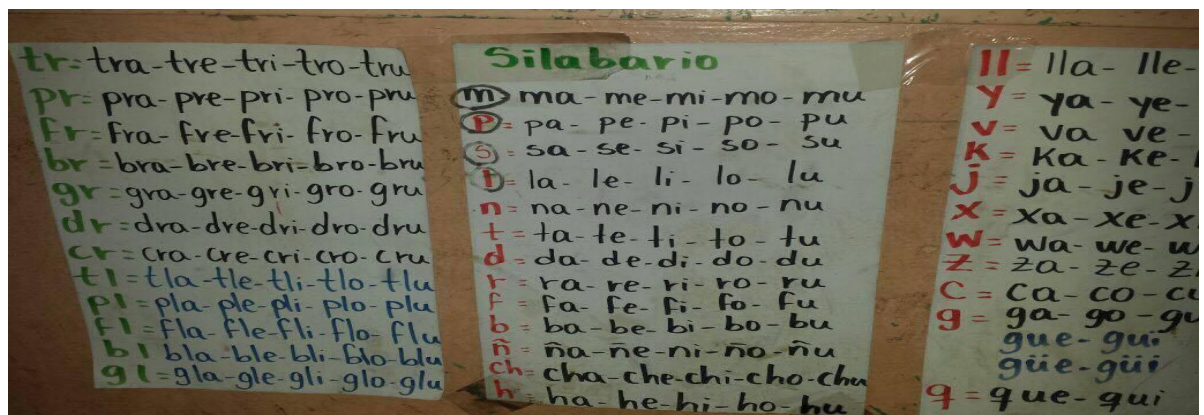 tr= tra-tre-tri-tro-tru
pr= pra-pre-pri-pro-pru
fr= fra-fre-fri-fro-fru
br= bra-bre-bri-bro-bru
gr= gra-gre-gri-gro-gru
dr= dra-dre-dri-dro-dru
cr= cra-cre-cri-cro-cru
tl= tla-tle-tli-tlo-tlu
pl= pla-ple-pli-plo-plu
fl= fla-fle-fli-flo-flu
bl= bla-ble-bli-blo-blu
gl= gla-gle-gli-glo-glu
Silabario
m ma-me-mi-mo-mu
p= pa-pe-pi-po-pu
s= sa-se-si-so-su
l= la-le-li-lo-lu
n= na-ne-ni-no-nu
t= ta-te-ti-to-tu
d= da-de-di-do-du
r= ra-re-ri-ro-ru
f= fa-fe-fi-fo-fu
b= ba-be-bi-bo-bu
ñ= ña-ñe-ni-ño-ñu
ch= cha-che-chi-cho-chu
h= ha-he-hi-ho-hu
ll= lla-lle-
y= ya-ye-
v= va ve-
K= Ka-Ke-
j= ja-je-j
x= xa-xe-x
w= wa-we-
z= za-ze-z
c= ca-co-
g= ga-go-gu
gue-gui
güe-güi
q= que-qui